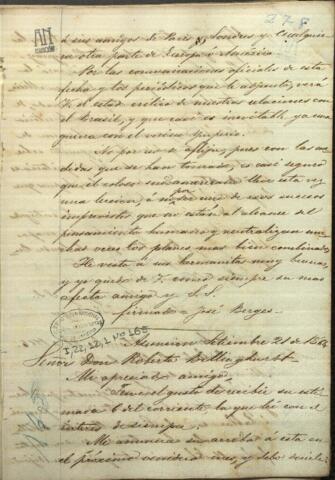 278
AN
ASUNCION
á sus amigos de Paris, Londres y cualquie
ra otra parte de Europa ó America.
Por las comunicaciones oficiales de esta
fecha y los periódicos que le adjunto, verá
V. el estado critico de nuestras relaciones con
el Brasil, y que casi es inevitable ya una
guerra con el vecino Imperio.
No por eso se aflija, pues con las me
didas que se han tomado, es casi seguro
que el coloso sud-americano lleve esta vez
una leccion, á no ser por uno de esos sucesos
imprevistos que no estan al alcance del
pensamiento humano y neutralizan mu
chas veces los planes mas bien combinados.
He visto á sus hermanitas muy buenas
y yo quedo de V. como siempre su mas
afecto amigo y S. S.
firmado José Berges
I/22,12,1 Nº 165
Asuncion Setiembre 21 de 1864
Señor Don Roberto Billinghurst
Mi apreciado amigo,
Tuve el gusto de recibir su esti
mada 6 del corriente, la que leí con el
interes de siempre.
Me anuncia su arribo á esta en
el próximo venidero mes, y debo decirle